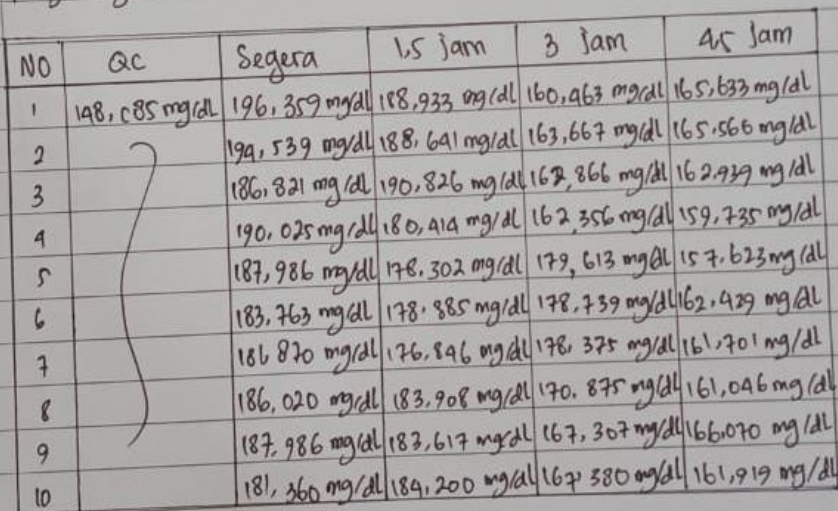 NO QC Segera 1,5 jam 3 Jam 4,5 Jam
1 148,085 mg/dl 196,359 mg/dl 188,933 mg/dl 160,463 mg/dl 165,633 mg/dl
2 194,539 mg/dl 188,641 mg/dl 163,667 mg/dl 165.566 mg/dl
3 186,821 mg/dl 190,826 mg/dl 162,866 mg/dl 162.939 mg/dl
4 190,025 mg/dl 180,414 mg/dl 162,356 mg/dl 159,735 mg/dl
5 187,986 mg/dl 178.302 mg/dl 179,613 mg/dl 157.623 mg/dl
6 183,763 mg/dl 178.885 mg/dl 178,739 mg/dl 162.429 mg/dl
7 186 870 mg/dl 176,846 mg/dl 178,375 mg/dl 161,701 mg/dl
8 186,020 mg/dl 183.908 mg/dl 170.875 mg/dl 161,046 mg/dl
9 187,986 mg/dl 183,617 mg/dl 167,307 mg/dl 166,070 mg/dl
10 181,360 mg/dl 184,200 mg/dl 167 380 mg/dl 161,919 mg/dl